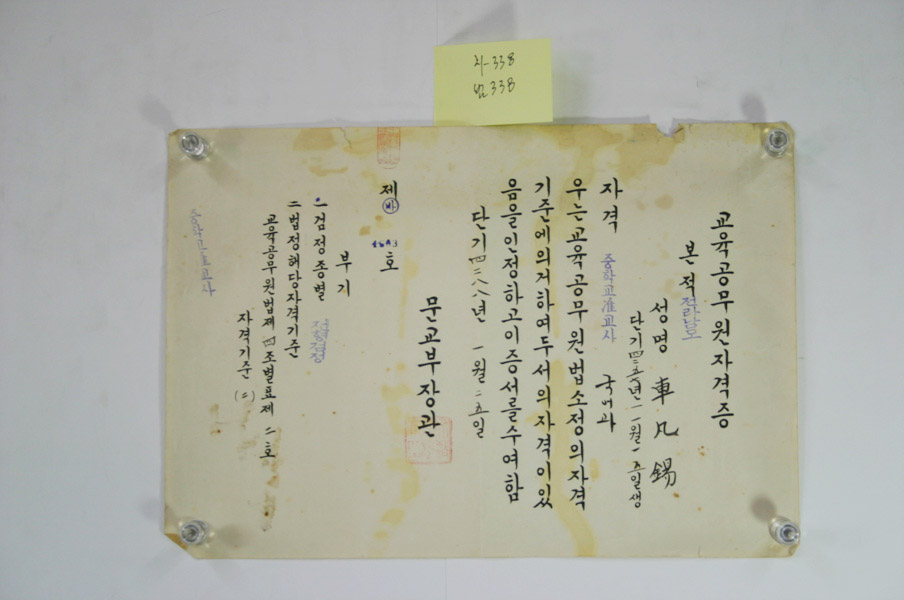 338
338
교육공무원자격증
본적 전라남도
성명 車凡錫
단기四二五八年 一一월 一五일생
자격 중학교准교사 국어과
우는교육공무원법소정의자격
기준에의거하여두서의자격이있
음을인정하고이증서를수여함
단기四二八八년 一월 二五일
문교부장관
제 바 호
부기
一 검정종별
二 법정해당자격기준
교육공무원법제四조별표제二호
자격기준 (二)
중학교준교사